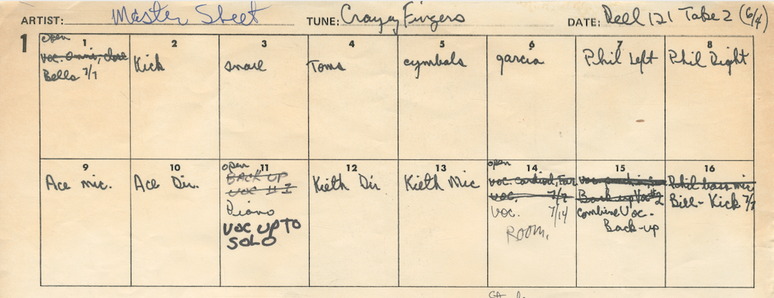 ARTIST: Master Sheet TUNE: Crazey Fingers DATE: Reel 121 Take 2 (6/4)
1
open
1
voc. omni, close
Bells 7/7
2
Kick
3
snare
4
Toms
5
cymbals
6
garcia
7
Phil Left
8
Phil Right
9
Ace mic.
10
Ace Dir.
open
11
BACK UP
VOC # I
Piano
VOC UP TO
SOLO
12
Kieth Dir
13
Kieth Mic
open
14
voc. cardiod, Far
voc, 7/7
voc. 7/14
Room.
15
Back up Voc #2
Combine Voc-
Back-up
16
Phil bass mic
Bill- Kick 7/7